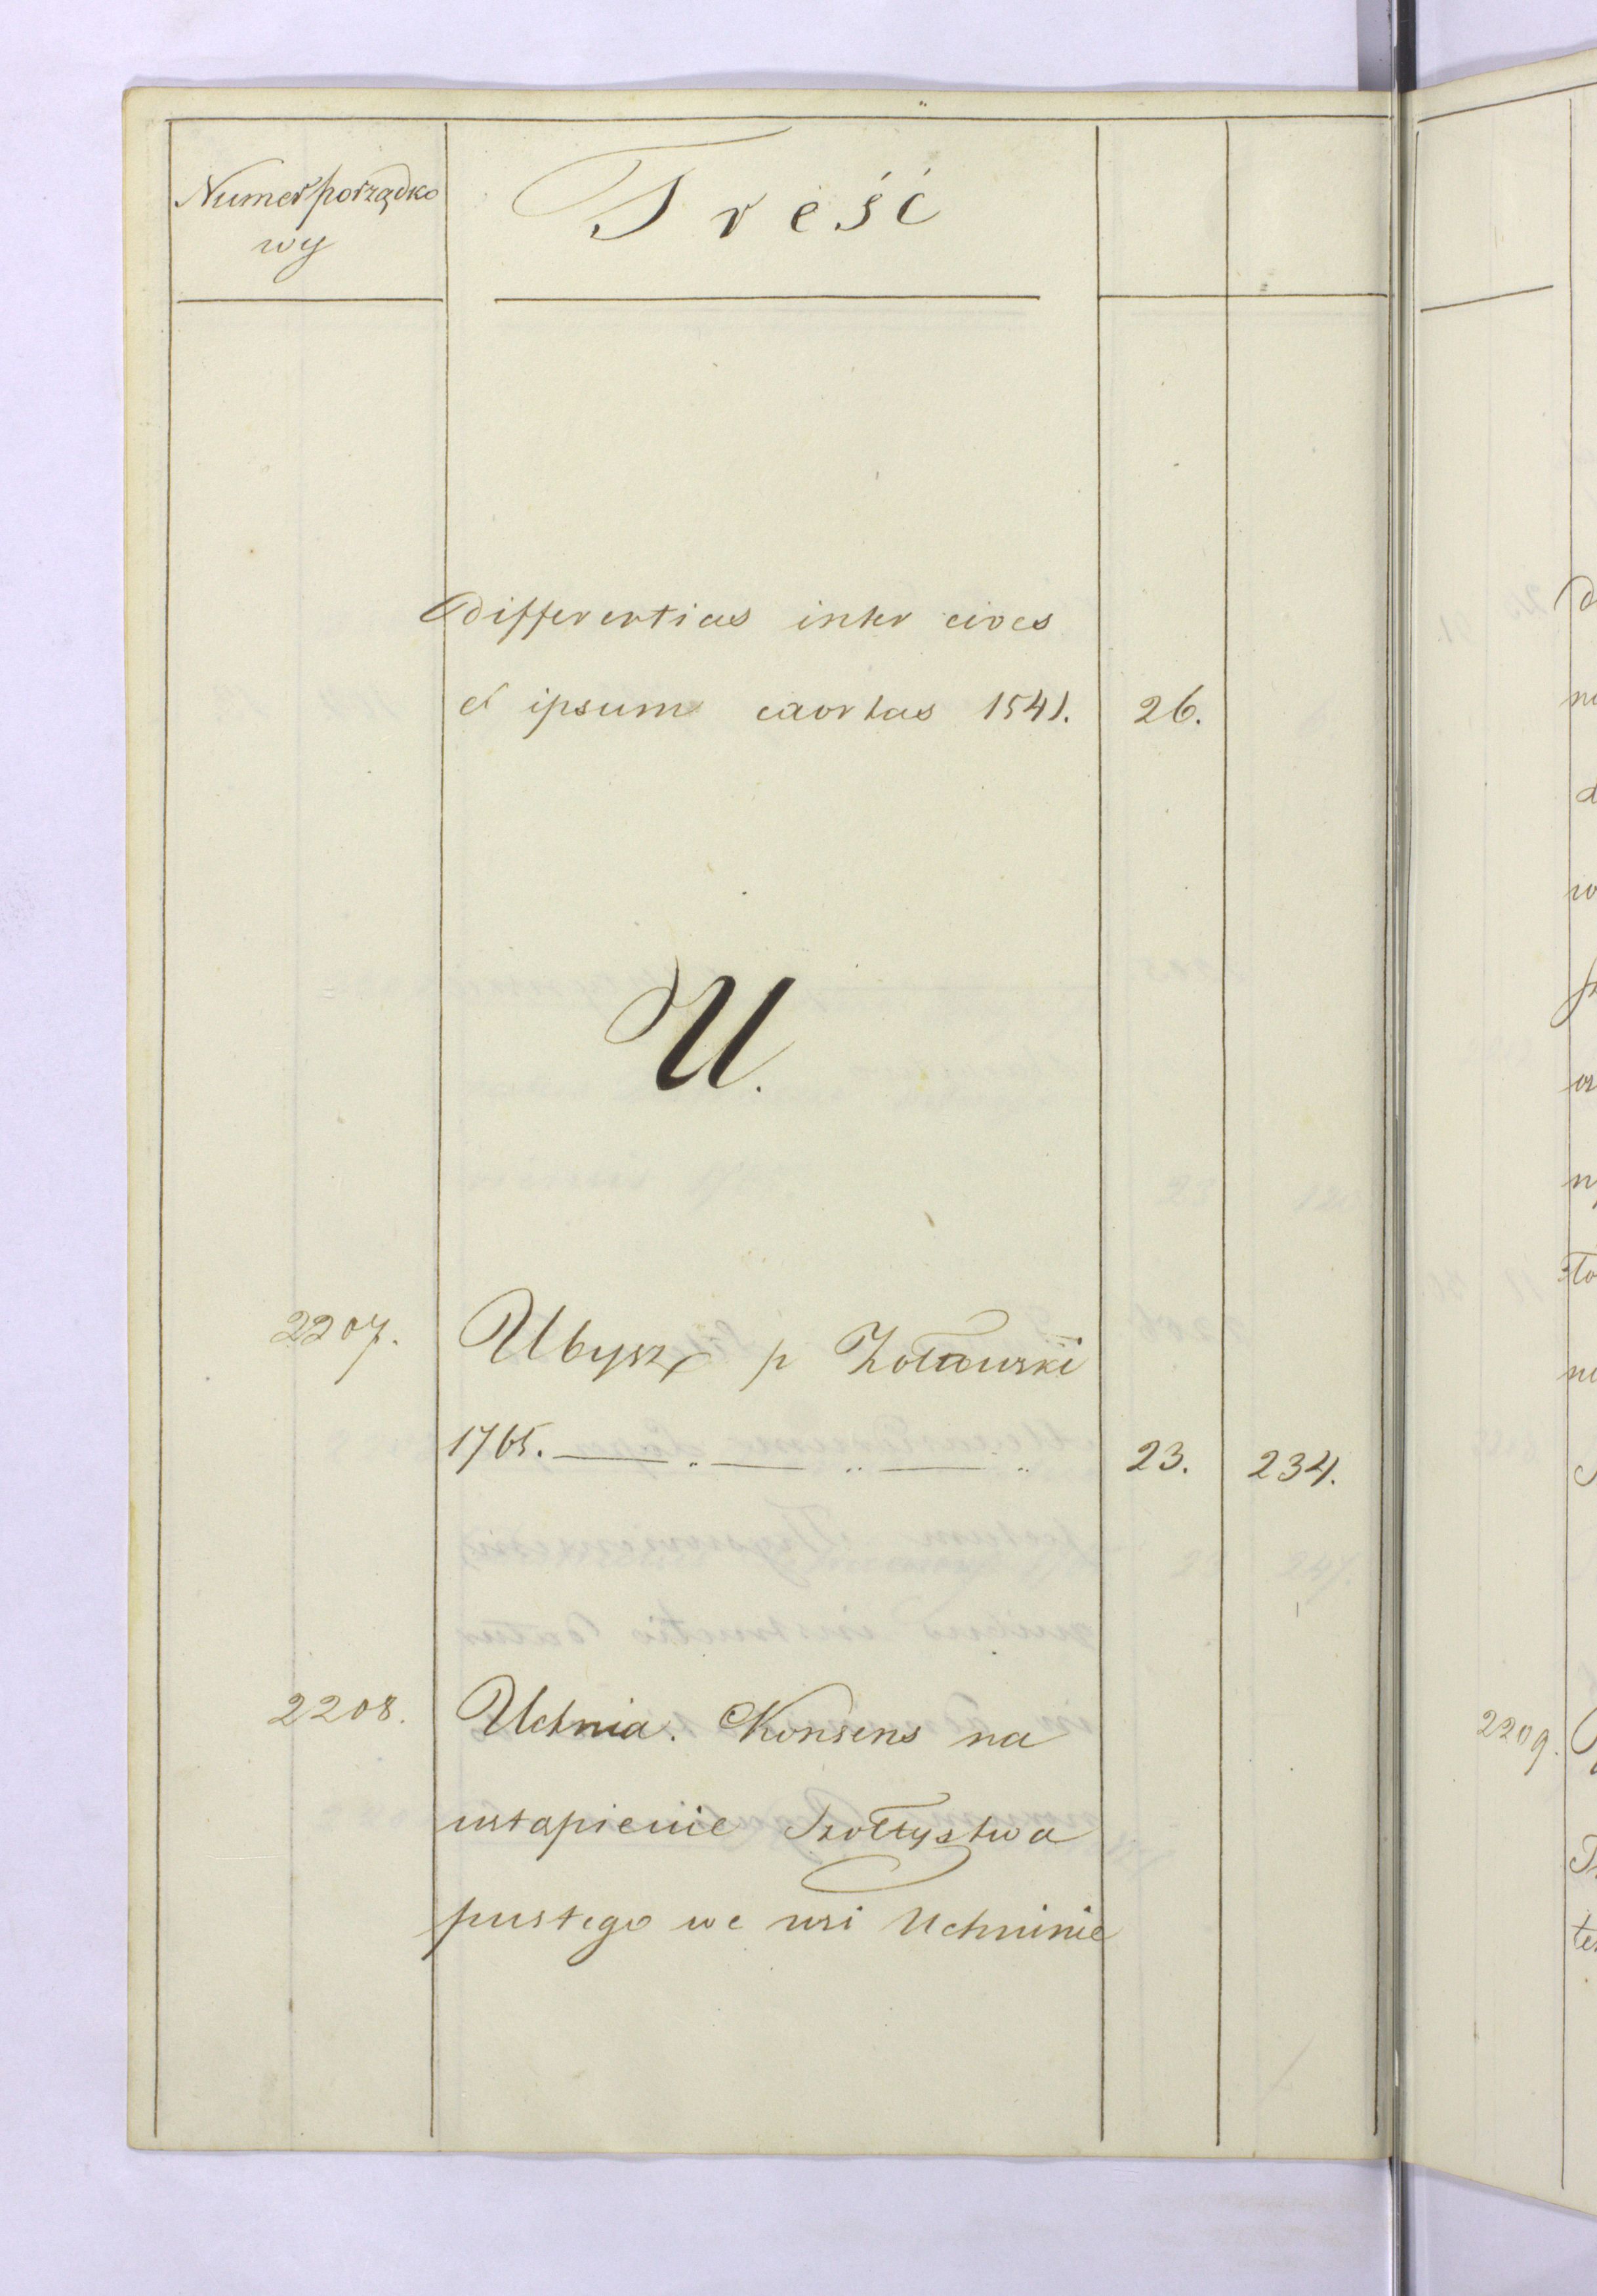 Numer porządko
wy
Treść
differentias inter cives
et ipsum caortas 1541. 26.
U.
2207. Ubysz p Żołtowski
1765. — „ — „ — „ 23. 234.
2208. Uchnia. Konsens na
ustąpienie Szołtystwa
pustego we wsi Uchninie
2209.